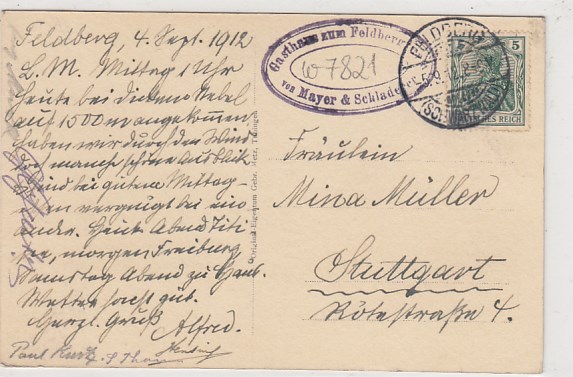 Feldberg, 4. Sept. 1912
L. M. Mittag 1 Uhr
Heute bei dickem Nebel
auf 1500 m angekommen,
haben wir durch den Wind
doch manche schöne Ausblick
sind bei gutem Mittag-
en vergnügt bei ein
ander. Heute Abend Titi
see, morgen Freiburg
Samstag Abend zu Haus.
Wetter sonst gut.
Herzl. Gruß
Alfred.
Paul Kurtz
Original Eigentum Gebr. Metz, Tübingen
Gasthaus zum Feldberg
von Mayer & Schlad
W 7821
FELDBERG
(SCHWARZWALD)
5
DEUTSCHES REICH
Fräulein
Mina Müller
Stuttgart
Rötestraße 4.